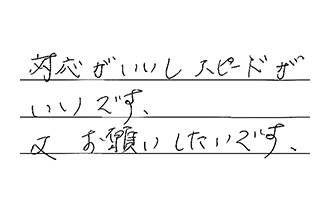 対応がいいしスピードが
いいです、
又 お願いしたいです、